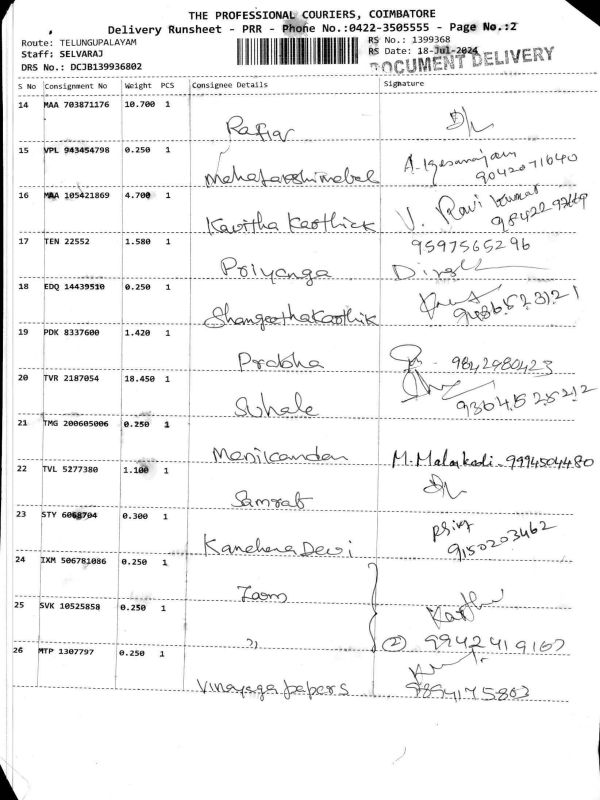 THE PROFESSIONAL COURIERS, COIMBATORE
Delivery Runsheet - PRR - Phone No.:0422-3505555 - Page No.:2
Route: TELUNGUPALAYAM RS No.: 1399368
Staff: SELVARAJ RS Date: 18-Jul-2024
DRS No.: DCJB139936802 DOCUMENT DELIVERY
S No Consignment No Weight PCS Consignee Details Signature
14 MAA 703871176 10.700 1
Rafiq
15 VPL 943454798 0.250 1
9042071640
16 MAA 105421869 4.700 1
Kavitha Karthick V. Ravi kumar
17 TEN 22552 1.580 1 9597565296
Priyanga
18 EDQ 14439510 0.250 1
Shangeethakarthik
19 PDK 8337600 1.420 1
Prabha 9842980423
20 TVR 2187054 18.450 1
21 TMG 200605006 0.250 1
Manikandan M. Malarkodi - 9994504480
22 TVL 5277380 1.100 1
Samrat
23 STY 6068704 0.300 1
Kanchana Devi 9150203462
24 IXM 506781086 0.250 1
25 SVK 10525858 0.250 1
" (2)
26 MTP 1307797 0.250 1
Vinayaga papers 9894175803